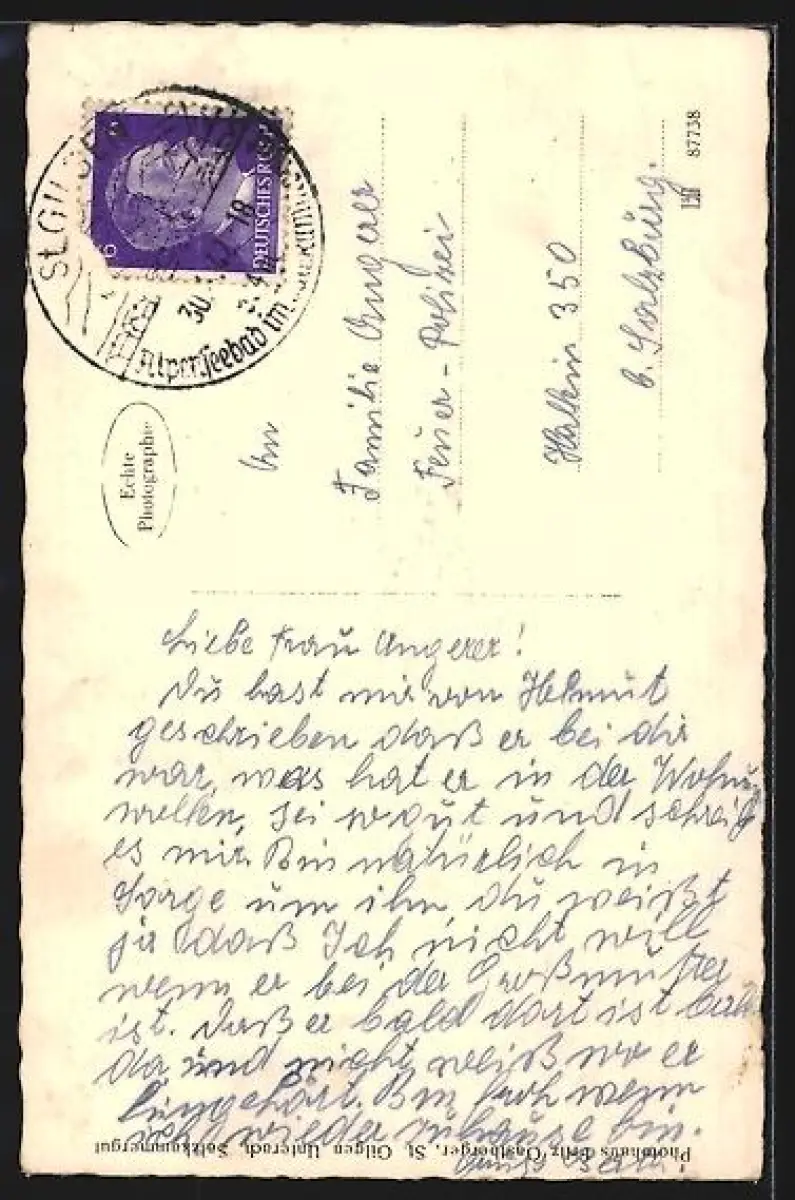 St. GILGEN
30.
18
Alpen-Seebad im
6
6
DEUTSCHES REICH
Echte
Photographie
An
Familie Angerer
Feuer-Polizei
Hallein 350
b. Salzburg.
87738
Liebe Frau Angerer!
Du hast mir von Helmut
geschrieben daß er bei dir
war, was hat er in der Wohnung
wollen, sei so gut und schreib
es mir. Bin natürlich in
Sorge um ihn, du weißt
ja daß Ich nicht will
wenn er bei der Großmutter
ist. Daß er bald dort ist bald
da und nicht weiß wo er
hingehört. Bin froh wenn
ich wieder zuhause bin.
Photohaus Fritz Gastberger, St. Gilgen Unterach, Salzkammergut